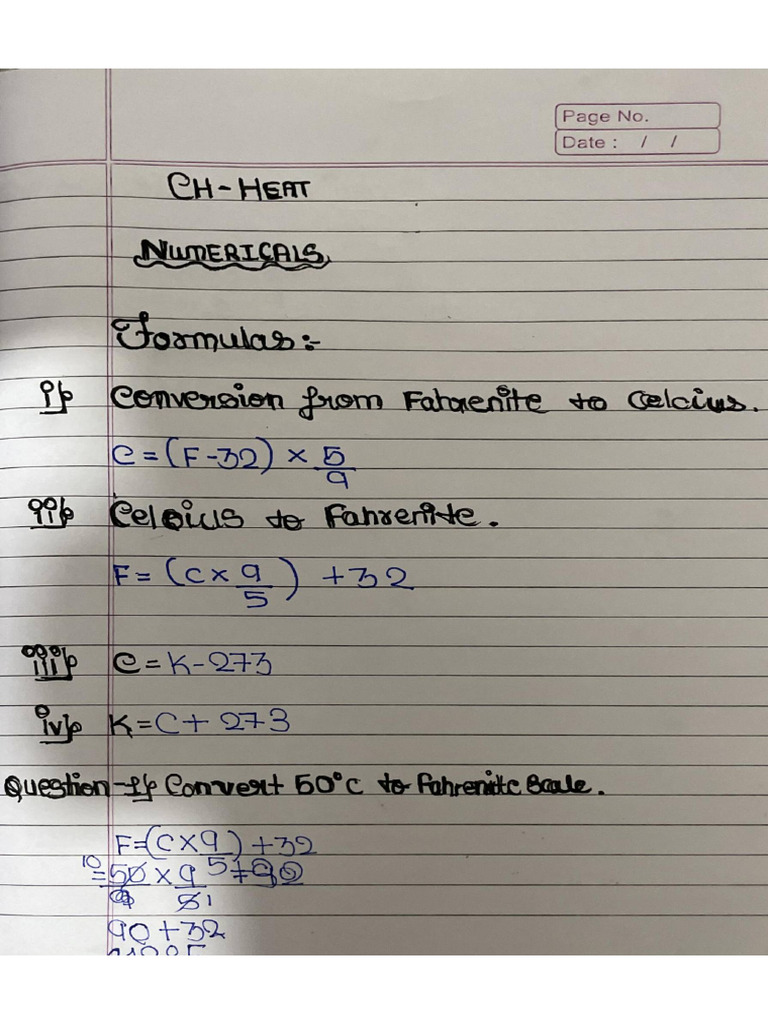 Page No.
Date : / /
CH-HEAT
NUMERICALS
Formulas:-
i) Conversion from Fahrenite to Celcius.
C = (F-32) × 5/9
ii) Celcius to Fahrenite.
F = (C × 9/5) + 32
iii) C = K-273
iv) K = C + 273
Question-1) Convert 50°C to Fahrenite Scale.
F = (C × 9) + 32
10 = 50 × 9 5
5 1
90 + 32